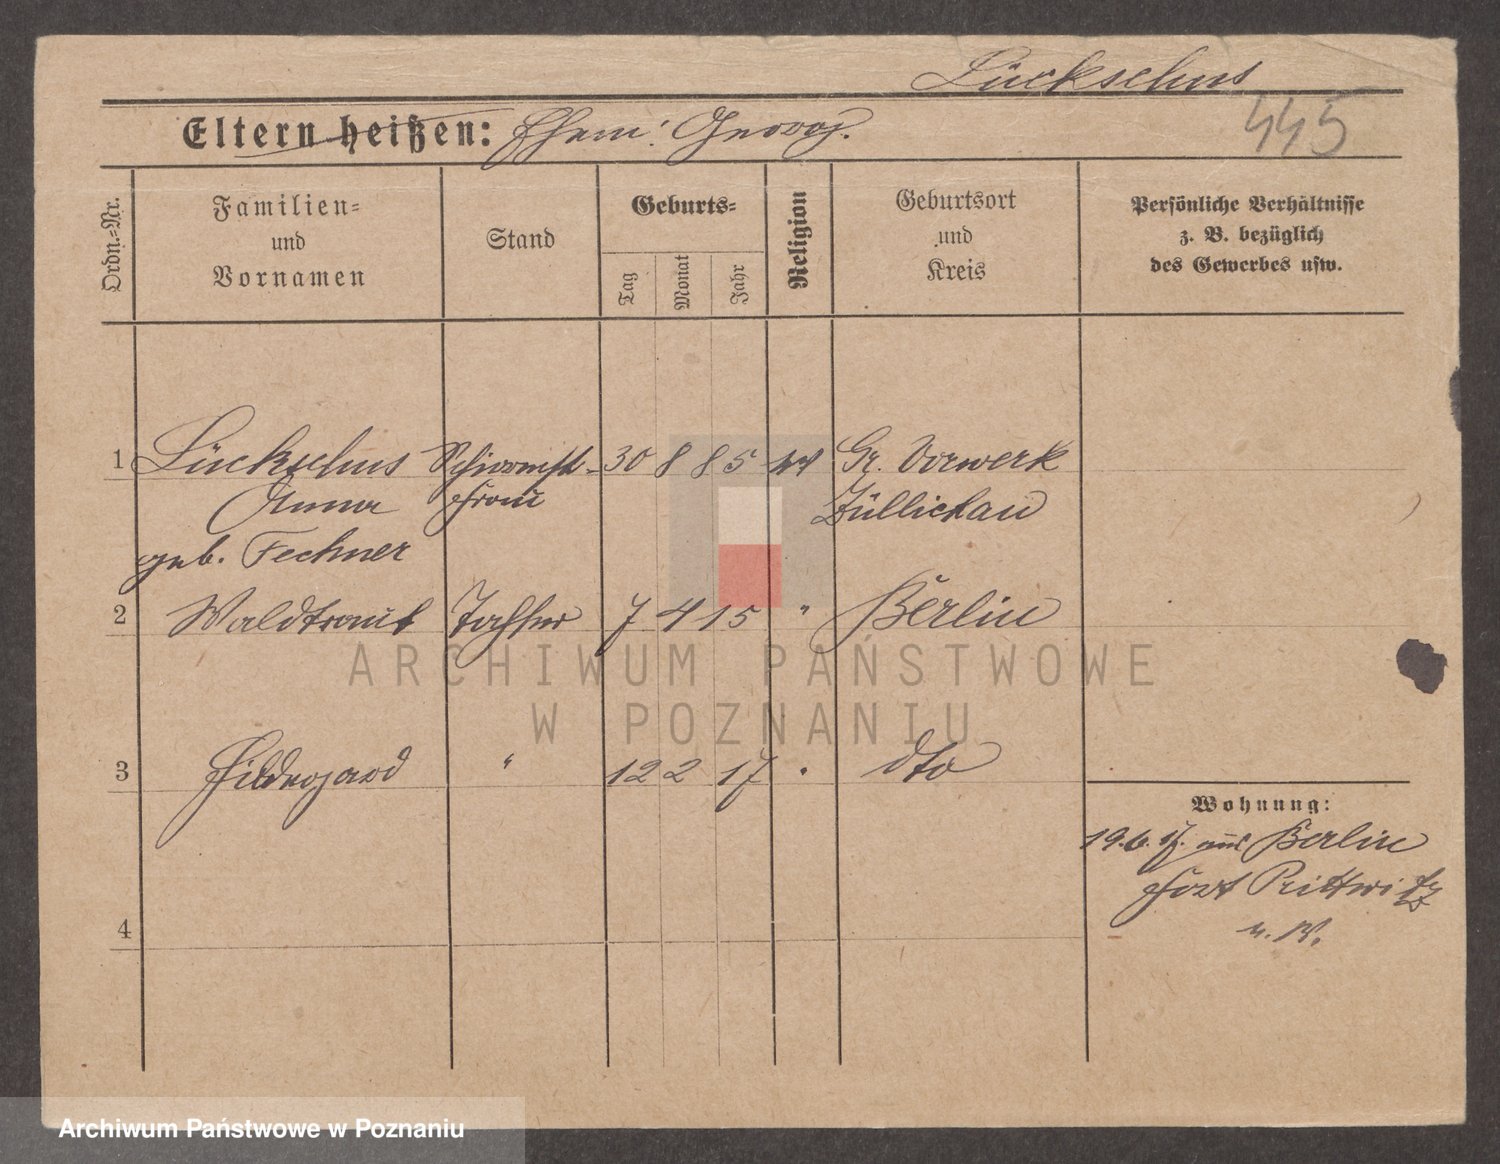 Lückschus
445
Eltern heißen: Ehem: Georg.
Ordn.=Nr.
Familien=
und
Vornamen
Stand
Geburts=
Tag
Monat
Jahr
Religion
Geburtsort
und
Kreis
Persönliche Verhältnisse
z. B. bezüglich
des Gewerbes usw.
1 Lückschus 30 8 85 Gr. Vorwerk
Anna frau Züllichau
geb. Fechner
2 Waldtraut Tochter 7 4 15 " Berlin
3 Hildegard " 12 2 17 " dto
4
Wohnung:
19. 6. 17. aus Berlin
Fort Prittwitz
ARCHIWUM PAŃSTWOWE
W POZNANIU
Archiwum Państwowe w Poznaniu